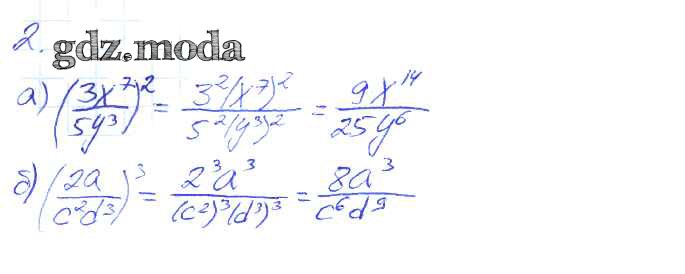 2. gdz.moda
а) (3x^7/5y^3)^2 = 3^2(x^7)^2/5^2(y^3)^2 = 9x^14/25y^6
б) (2a/c^2d^3)^3 = 2^3a^3/(c^2)^3(d^3)^3 = 8a^3/c^6d^9